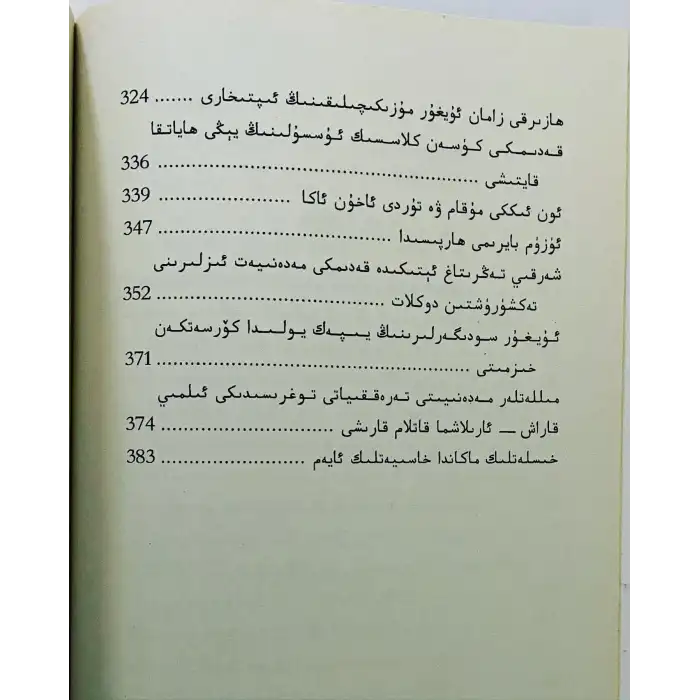 ھازىرقى زامان ئۇيغۇر مۇزىكىچىلىقىنىڭ ئىپتىخارى ....... 324
قەدىمكى كۈسەن كلاسسىك ئۇسسۇلىنىڭ يېڭى ھاياتقا
قايتىشى ................................................ 336
ئون ئىككى مۇقام ۋە تۇردى ئاخۇن ئاكا .................... 339
ئۈزۈم بايرىمى ھارپىسىدا ................................... 347
شەرقىي تەڭرىتاغ ئېتىكىدە قەدىمكى مەدەنىيەت ئىزلىرىنى
تەكشۈرۈشتىن دوكلات .................................. 352
ئۇيغۇر سودىگەرلىرىنىڭ يىپەك يولىدا كۆرسەتكەن
خىزمىتى ............................................... 371
مىللەتلەر مەدەنىيىتى تەرەققىياتى توغرىسىدىكى ئىلمىي
قاراش — ئارىلاشما قاتلام قارىشى .......................... 374
خىسلەتلىك ماكاندا خاسىيەتلىك ئايەم ...................... 383